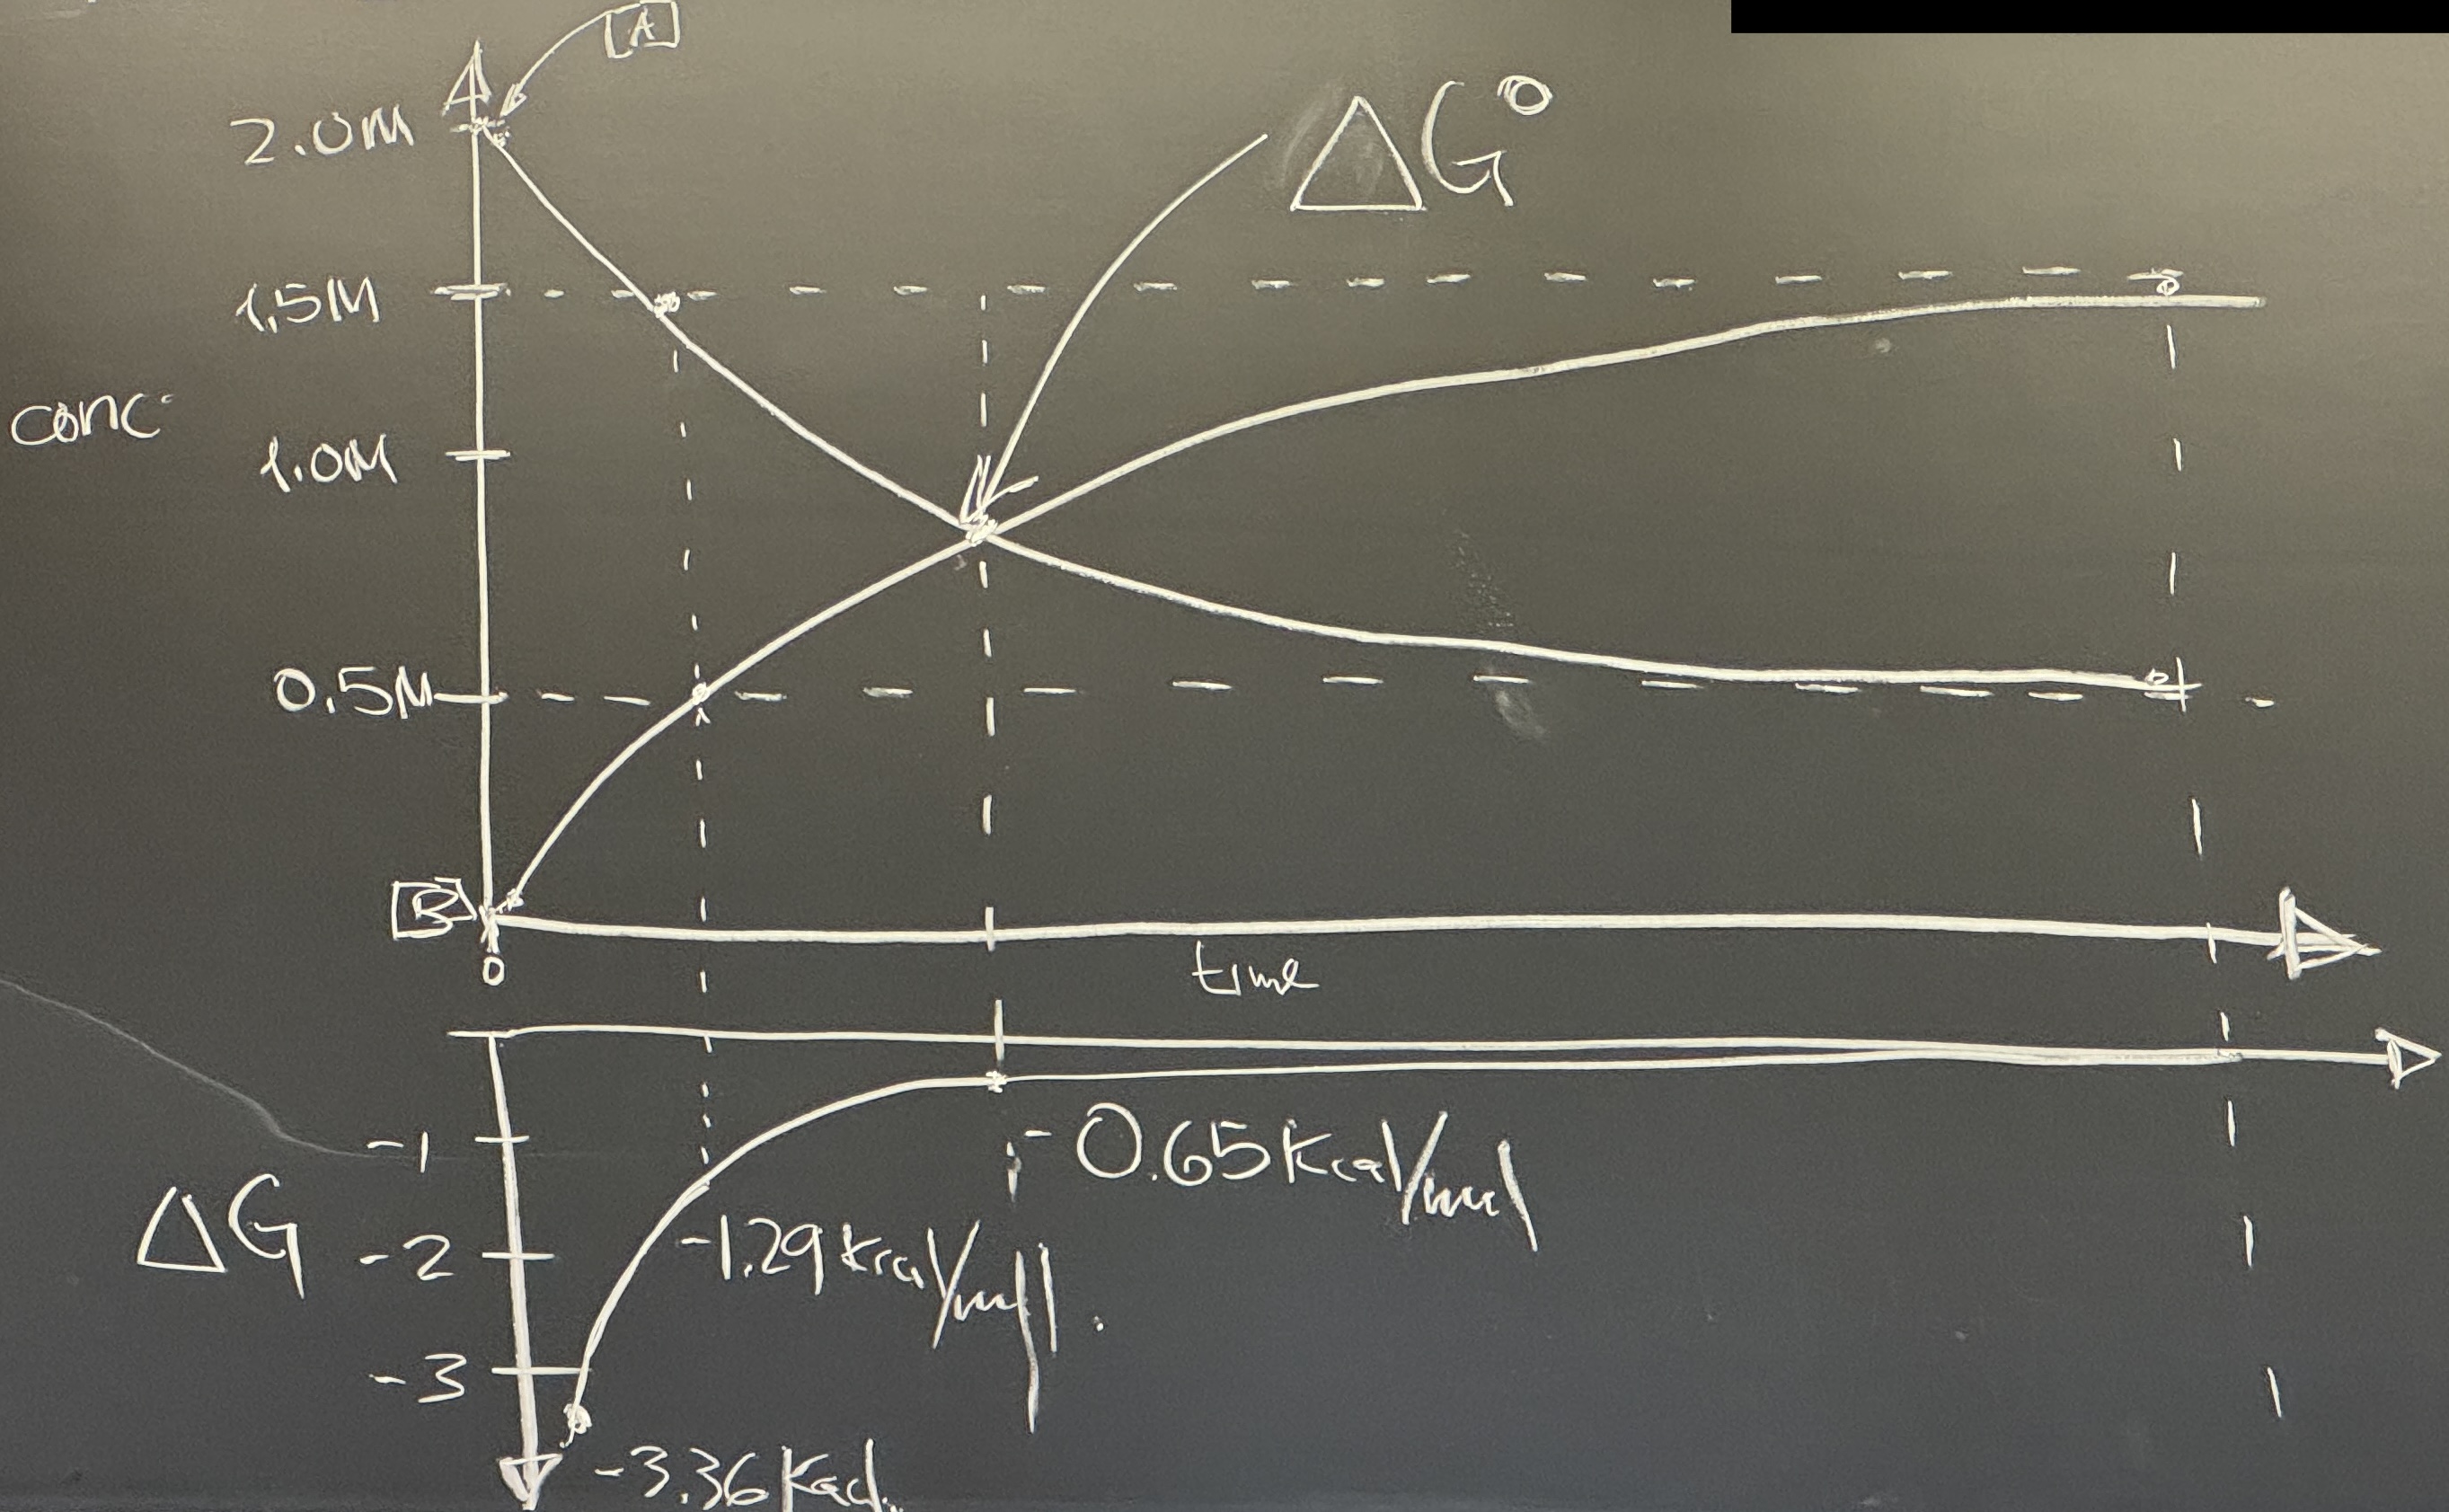 [A]
2.0M
ΔG°
1.5M
conc.
1.0M
0.5M
[B]
0
time
-1
-0.65 Kcal/mol
ΔG
-2
-1.29 Kcal/mol.
-3
-3.36 Kcal.